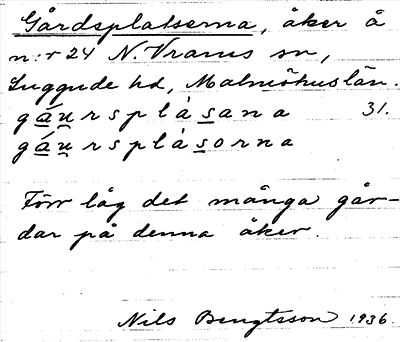 Gårdsplatserna, åker å
n:r 24 N. Vrams sn,
Luggude hd, Malmöhus län.
gáu̯rsplàsana 31.
gáu̯rsplàsorna
Förr låg det många går-
dar på denna åker.
Nils Bengtsson 1936.